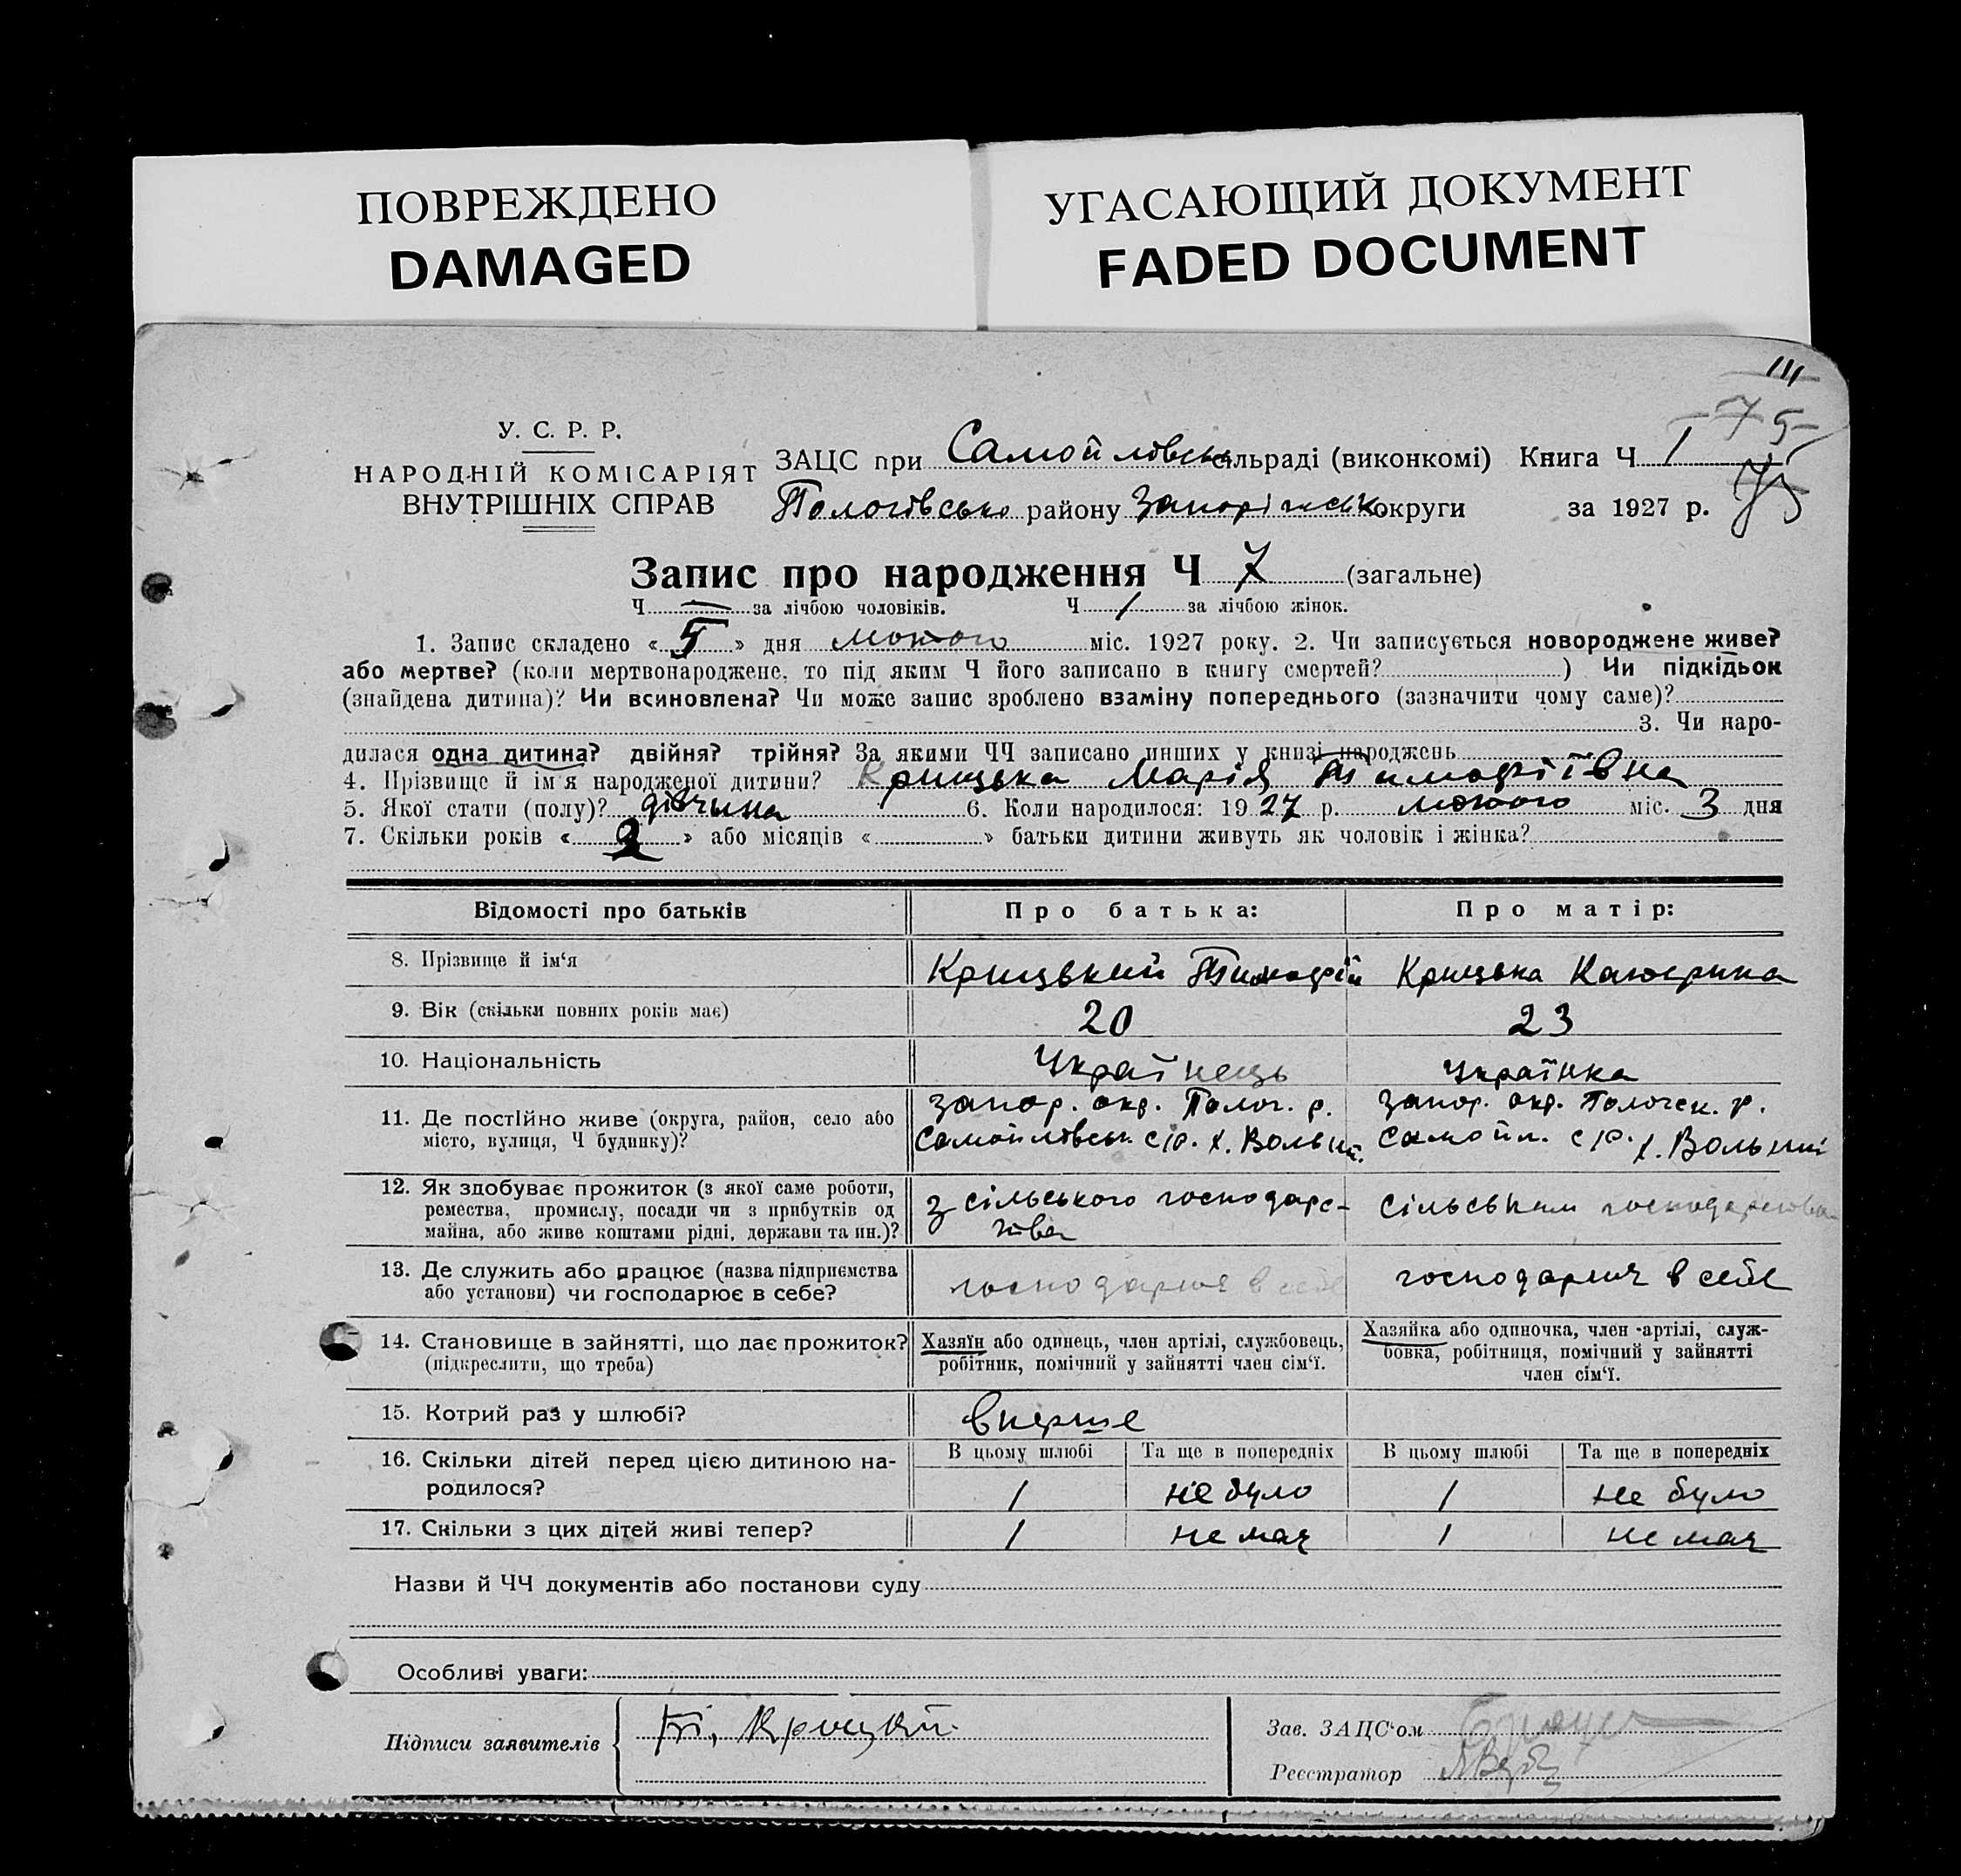 ПОВРЕЖДЕНО
DAMAGED
УГАСАЮЩИЙ ДОКУМЕНТ
FADED DOCUMENT
111
75
У. С. Р. Р.
НАРОДНІЙ КОМІСАРІЯТ
ВНУТРІШНІХ СПРАВ
ЗАЦС при Самойлівськ сільраді (виконкомі) Книга Ч 1
Пологівсько району Запоріжськ округи за 1927 р.
Запис про народження Ч 7 (загальне)
Ч — за лічбою чоловіків. Ч 1 за лічбою жінок.
1. Запис складено « 5 » дня лютого міс. 1927 року. 2. Чи записується новороджене живе?
або мертве? (коли мертвонароджене, то під яким Ч його записано в книгу смертей? ) Чи підкідьок
(знайдена дитина)? Чи всиновлена? Чи може запис зроблено взаміну попереднього (зазначити чому саме)?
3. Чи наро-
дилася одна дитина? двійня? трійня? За якими ЧЧ записано инших у книзі народжень
4. Прізвище й ім'я народженої дитини? Крицька Марія Тимофіївна
5. Якої стати (полу)? дівчина 6. Коли народилося: 1927 р. лютого міс. 3 дня
7. Скільки років « 2 » або місяців « » батьки дитини живуть як чоловік і жінка?
Відомості про батьків Про батька: Про матір:
8. Прізвище й ім'я Крицький Тимофій Крицька Катерина
9. Вік (скільки повних років має) 20 23
10. Національність Українець Українка
11. Де постійно живе (округа, район, село або місто, вулиця, Ч будинку)?
Запор. окр. Полог. р. Запор. окр. Пологск. р.
Самойлівськ. с/р. х. Вольн. Самойл. с/р. х. Вольний
12. Як здобуває прожиток (з якої саме роботи,
ремества, промислу, посади чи з прибутків од
майна, або живе коштами рідні, держави та ин.)?
З сільського господарс- сільським господарством
тва
13. Де служить або працює (назва підприємства
або установи) чи господарює в себе?
господарює в себе господарює в себе
14. Становище в зайнятті, що дає прожиток?
(підкреслити, що треба)
Хазяїн або одинець, член артілі, службовець,
робітник, помічний у зайнятті член сім'ї.
Хазяйка або одиночка, член артілі, служ-
бовка, робітниця, помічний у зайнятті
член сім'ї.
15. Котрий раз у шлюбі? вперше
16. Скільки дітей перед цією дитиною на-
родилося?
В цьому шлюбі Та ще в попередніх В цьому шлюбі Та ще в попередніх
1 не було 1 не було
17. Скільки з цих дітей живі тепер? 1 не має 1 не має
Назви й ЧЧ документів або постанови суду
Особливі уваги:
Підписи заявителів Крицкий
Зав. ЗАЦС'ом
Реєстратор